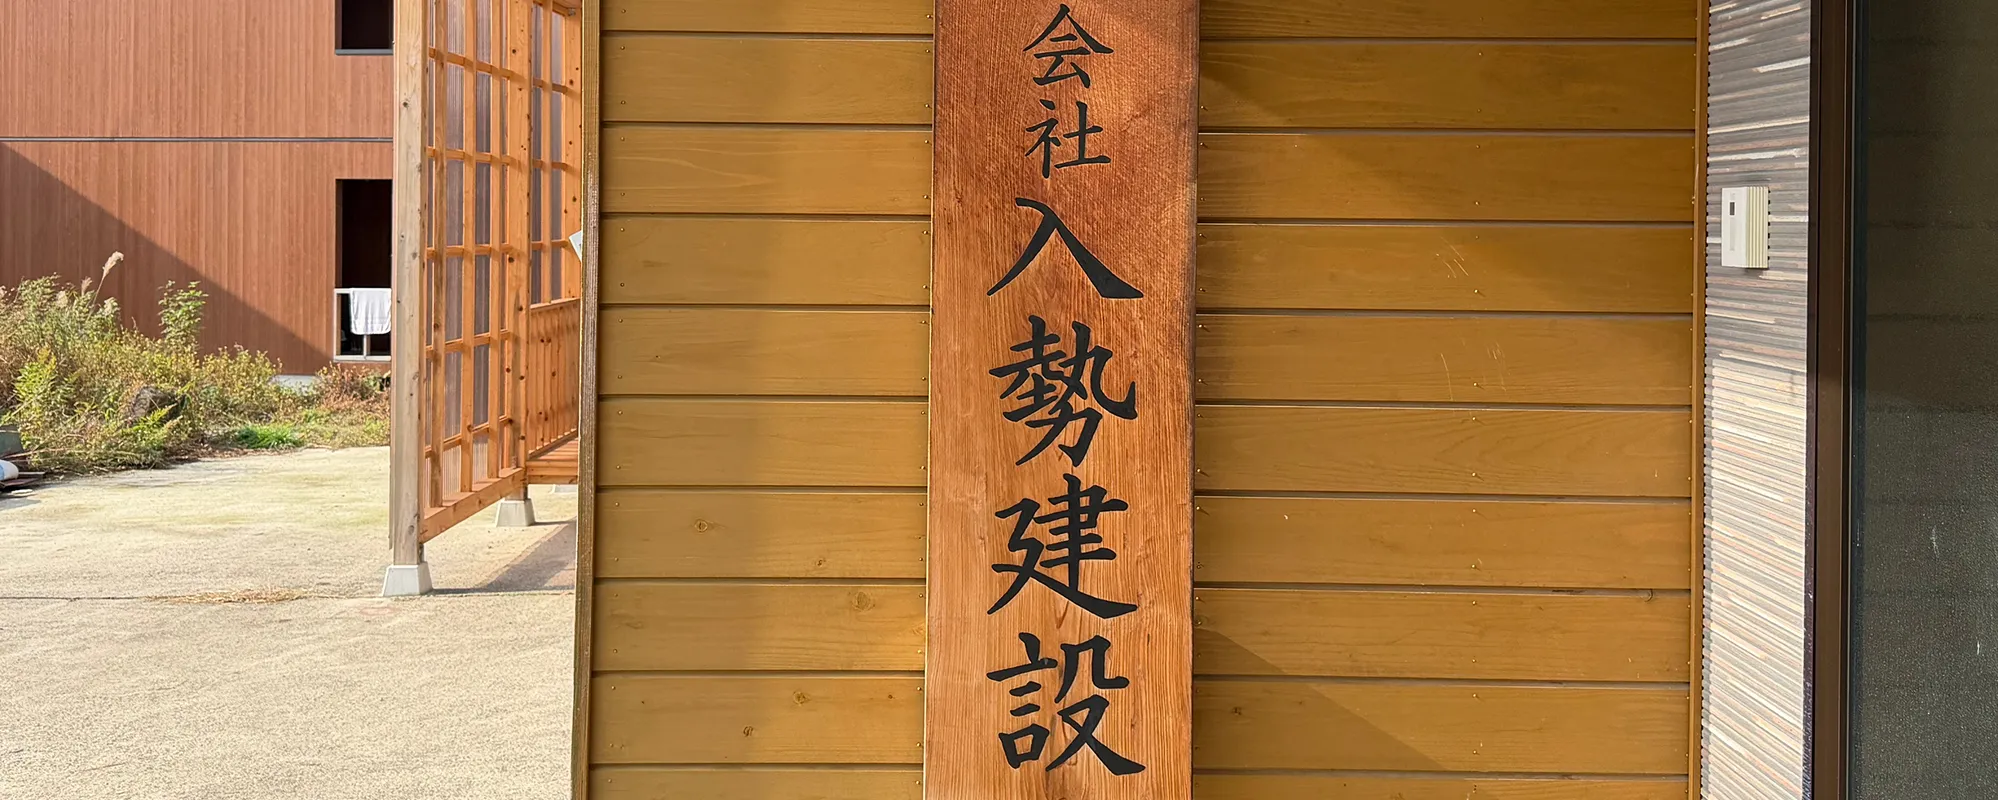 会社入勢建設